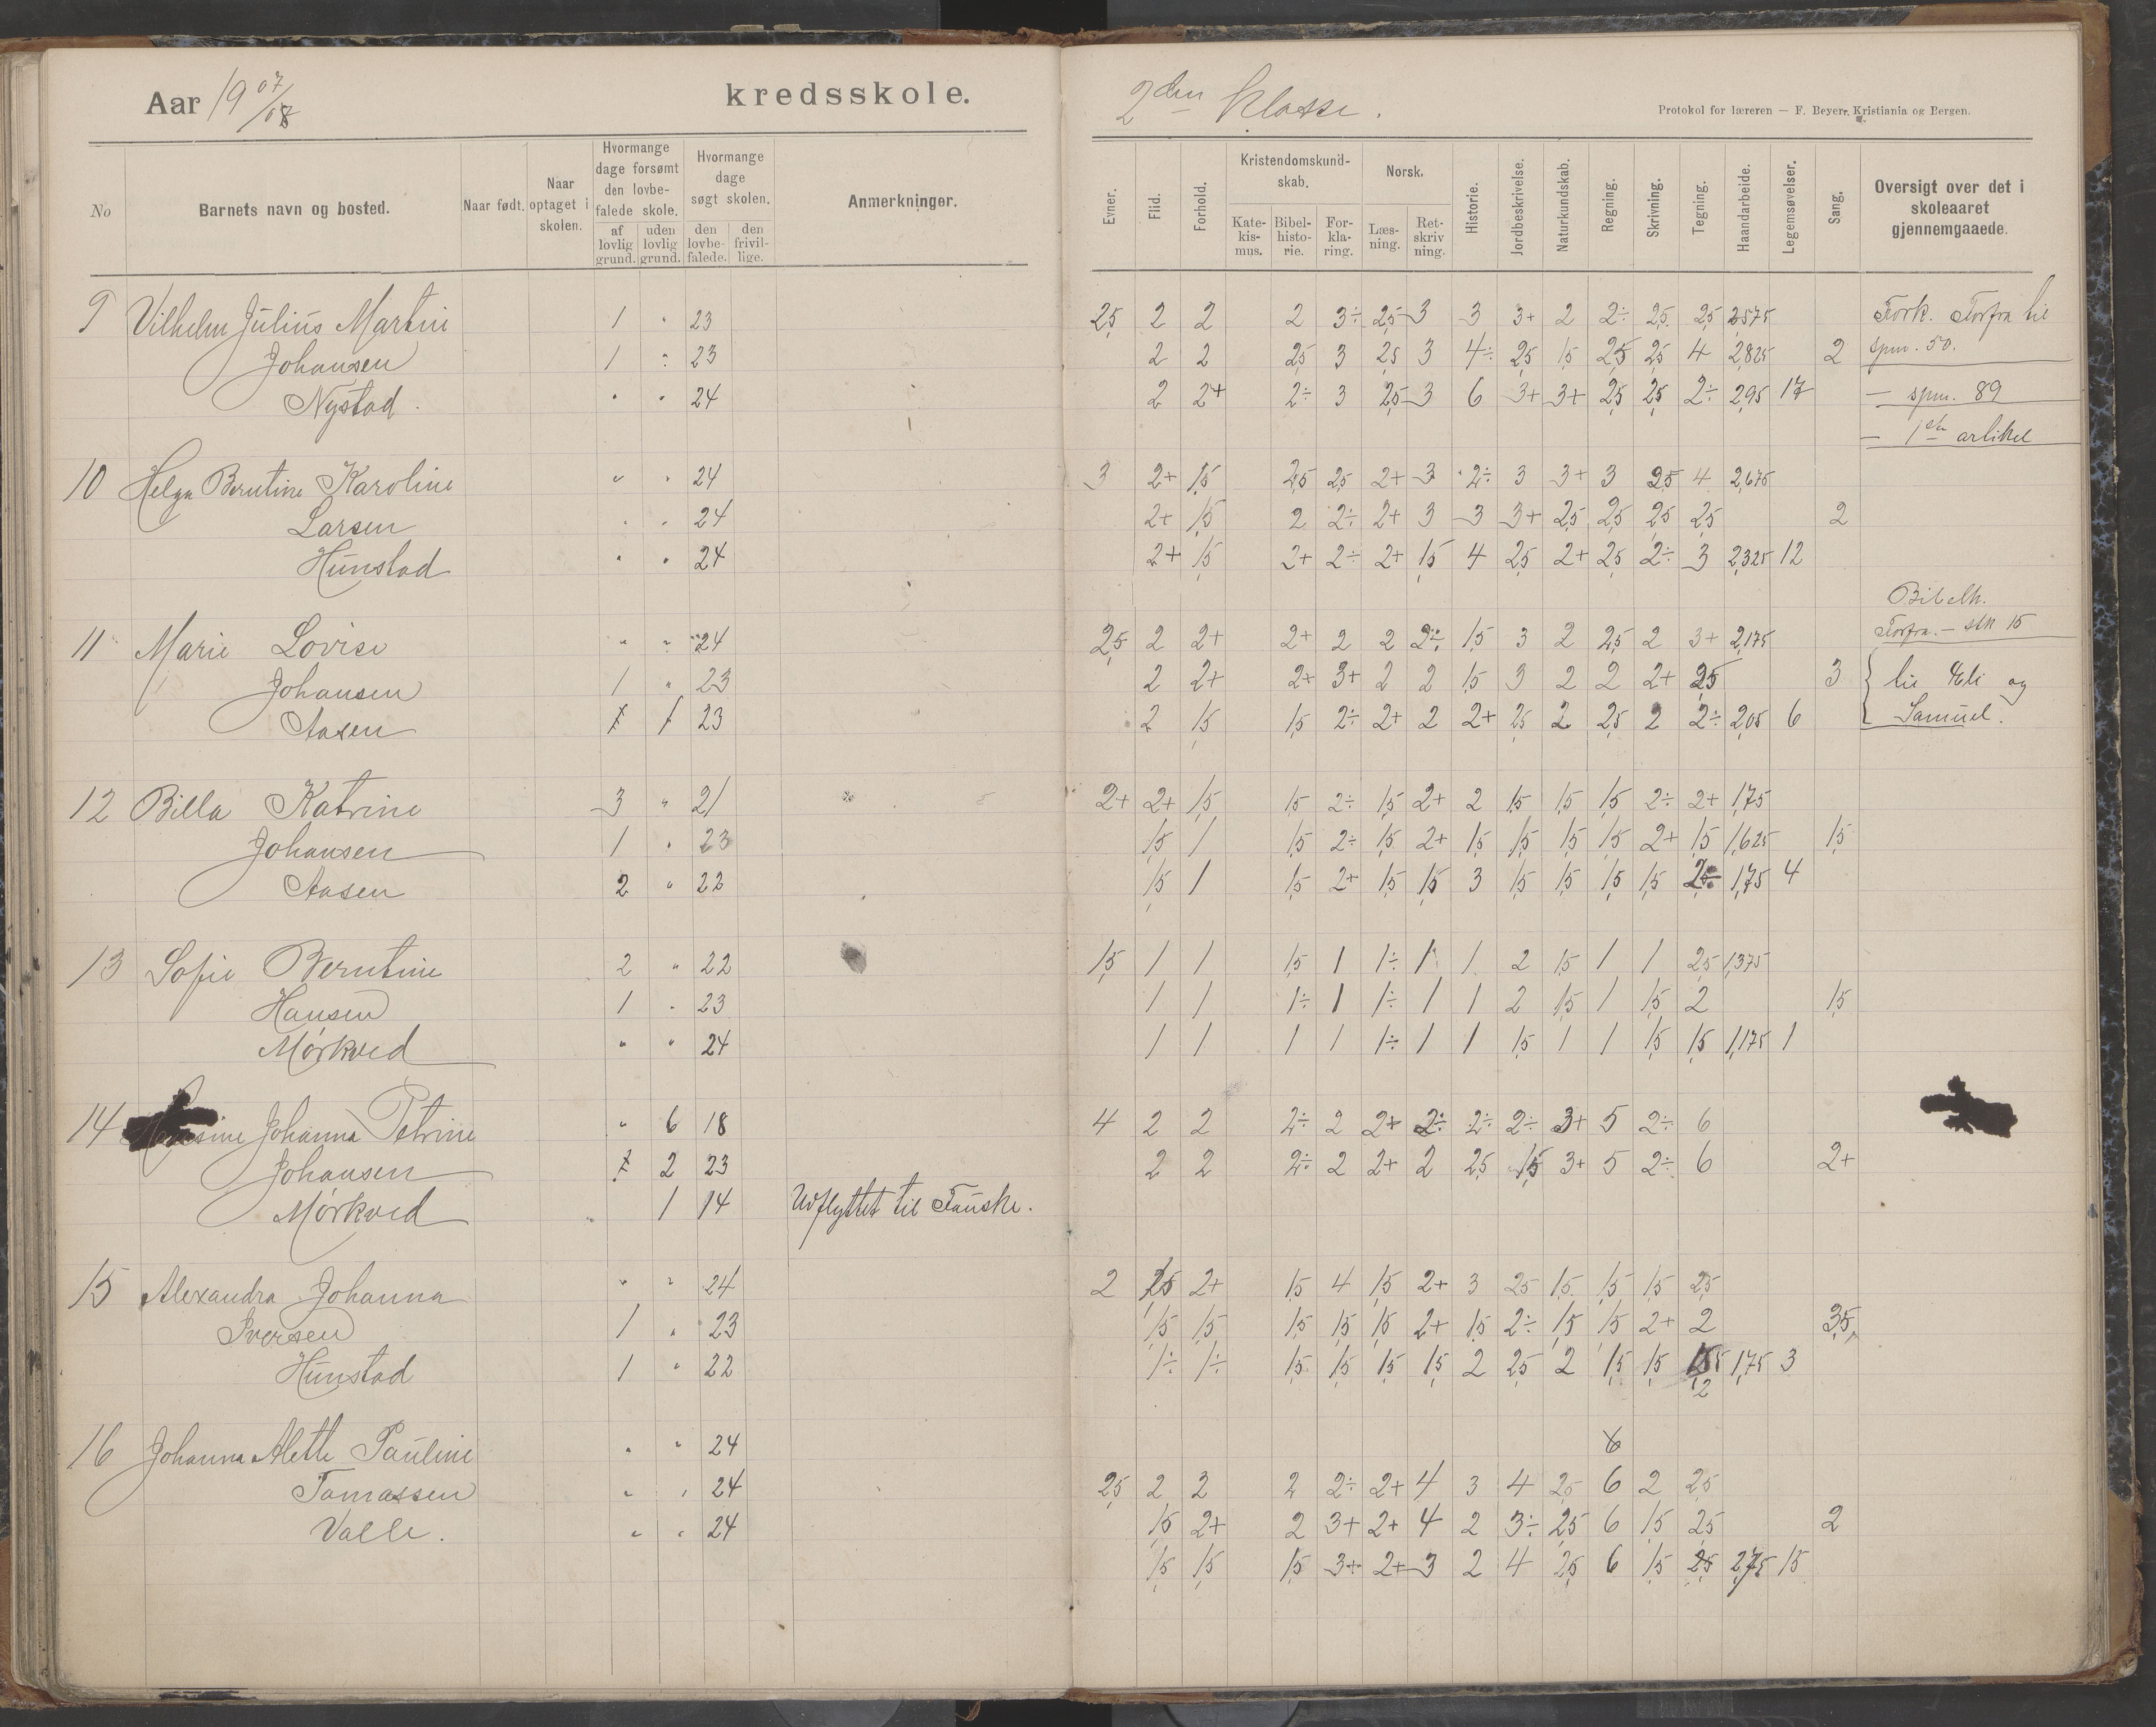 Aar 1907/08 kredsskole.
No Barnets navn og bosted. Naar født. Naar optaget i skolen. Hvormange dage forsømt den lovbefalede skole. af lovlig grund. uden lovlig grund. Hvormange dage søgt skolen. den lovbefalede. den frivillige. Anmerkninger.
9 Vilhelm Julius Martin 1 " 23
Johansen 1 " 23
Nystad. " " 24
10 Helga Berntine Karoline " " 24
Larsen " " 24
Hunstad " " 24
11 Marie Lovise " " 24
Johansen 1 " 23
Aasen 1 23
12 Billa Katrine 3 " 21
Johansen 1 " 23
Aasen 2 " 22
13 Sofie Berntine 2 " 22
Hansen 1 " 23
Mörkved " " 24
14 Johanna Petrine " 6 18
Johansen 2 23
Mörkved 1 14 Udflyttet til Fauske.
15 Alexandra Johanna " " 24
Iversen 1 " 23
Hunstad 1 " 22
16 Johanna Alette Pauline " " 24
Tomassen " " 24
Valle. " " 24
2den Klasse.
Protokol for læreren — F. Beyer, Kristiania og Bergen.
Evner. Flid. Forhold. Kristendomskundskab. Katekismus. Bibelhistorie. Forklaring. Norsk. Læsning. Retskrivning. Historie. Jordbeskrivelse. Naturkundskab. Regning. Skrivning. Tegning. Haandarbeide. Legemsøvelser. Sang. Oversigt over det i skoleaaret gjennemgaaede.
2,5 2 2 2 3÷ 2,5 3 3 3+ 2 2÷ 2,5 2,5 2,575 Fork. Forfra til
2 2 2,5 3 2,5 3 4÷ 2,5 1,5 2,5 2,5 4 2,825 2 spm. 50.
2 2+ 2÷ 3 2,5 3 6 3+ 3+ 2,5 2,5 2÷ 2,95 17 — spm. 89
— 1ste artikel
3 2+ 1,5 2,5 2,5 2+ 3 2÷ 3 3+ 3 2,5 4 2,675
2+ 1,5 2 2÷ 2+ 3 3 3+ 2,5 2,5 2,5 2,5 2
2+ 1,5 2+ 2÷ 2+ 1,5 4 2,5 2+ 2,5 2÷ 3 2,325 12
Bibelh.
2,5 2 2+ 2+ 2 2 2÷ 1,5 3 2 2,5 2 3+ 2,175 Forfra. — stk 15
2 2+ 2+ 3+ 2 2 1,5 3 2 2 2+ 2,5 3 til Eli og
2 1,5 1,5 2÷ 2+ 2 2+ 2,5 2 2,5 2 2÷ 2,05 6 Samuel.
2+ 2+ 1,5 1,5 2÷ 1,5 2+ 2 1,5 1,5 1,5 2÷ 2+ 1,75
1,5 1 1,5 2÷ 1,5 2+ 1,5 1,5 1,5 1,5 2+ 1,5 1,625 1,5
1,5 1 1,5 2+ 1,5 1,5 3 1,5 1,5 1,5 1,5 1,75 4
1,5 1 1 1,5 1 1÷ 1 1 2 1,5 1 1 2,5 1,375
1 1 1÷ 1 1÷ 1 1 2 1,5 1 1,5 2 1,5
1 1 1 1 1÷ 1 1 1,5 1 1 1,5 1,5 1,175 1
4 2 2 2÷ 2 2+ 2÷ 2÷ 2÷ 3+ 5 2÷ 6
2 2 2÷ 2 2+ 2 2,5 1,5 3+ 5 2÷ 6 2+
2 2+ 1,5 4 1,5 2+ 3 2,5 1,5 1,5 1,5 2,5
1,5 1,5 1,5 1,5 1,5 2+ 1,5 2÷ 1,5 1,5 2+ 2 3,5
1÷ 1÷ 1,5 1,5 1,5 1,5 2 2,5 2 1,5 1,5 1,75 3
2
2,5 2 2 2 2÷ 2+ 4 3 4 2,5 6 2 2,5
1,5 2+ 2 3+ 2+ 4 2 3÷ 2,5 6 1,5 2,5 2
1,5 1,5 1,5 3+ 2+ 3 2 4 2,5 6 1,5 2,5 2,75 15